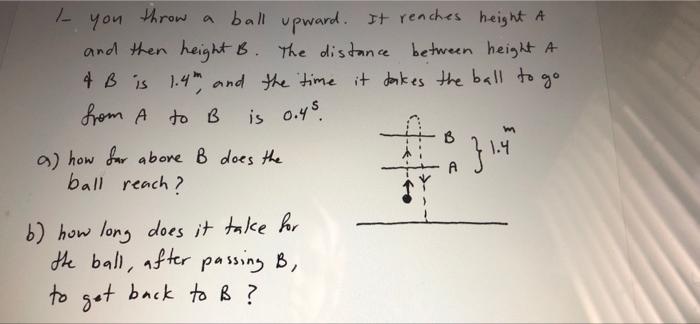 1- you throw a ball upward. It reaches height A
and then height B. The distance between height A
& B is 1.4m, and the time it takes the ball to go
from A to B is 0.4s.
a) how far above B does the
ball reach?
B
A
} 1.4m
b) how long does it take for
the ball, after passing B,
to get back to B ?